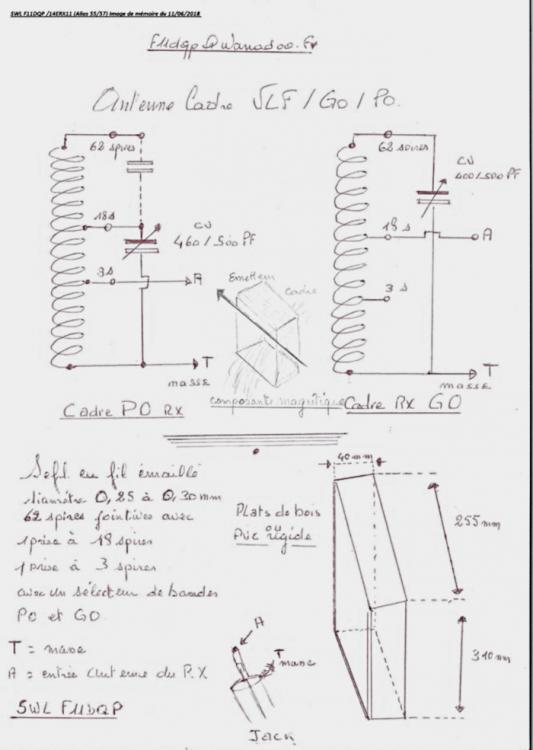 SWL F11DQP /14ERX11 (Alias 55/57) Image de mémoire du 11/06/2018
F11dqp @ Wanadoo.Fr
Antenne Cadre VLF / GO / PO.
62 spires
18s
CV
460 / 500 PF
3s
A
T
masse
Cadre PO Rx
Emetteur
cadre
composante magnétique
62 spires
CV
400/500 PF
18s
A
3 s
T
masse
Cadre Rx GO
Self en fil émaillé
diamètre 0,25 à 0,30 mm
62 spires jointives avec
1 prise à 18 spires
1 prise à 3 spires
avec un sélecteur de bandes
PO et GO
T = masse
A = entrée antenne du R.X
SWL F11DQP
Plats de bois
ou
Pvc rigide
40 mm
255 mm
340 mm
A
T
masse
Jack